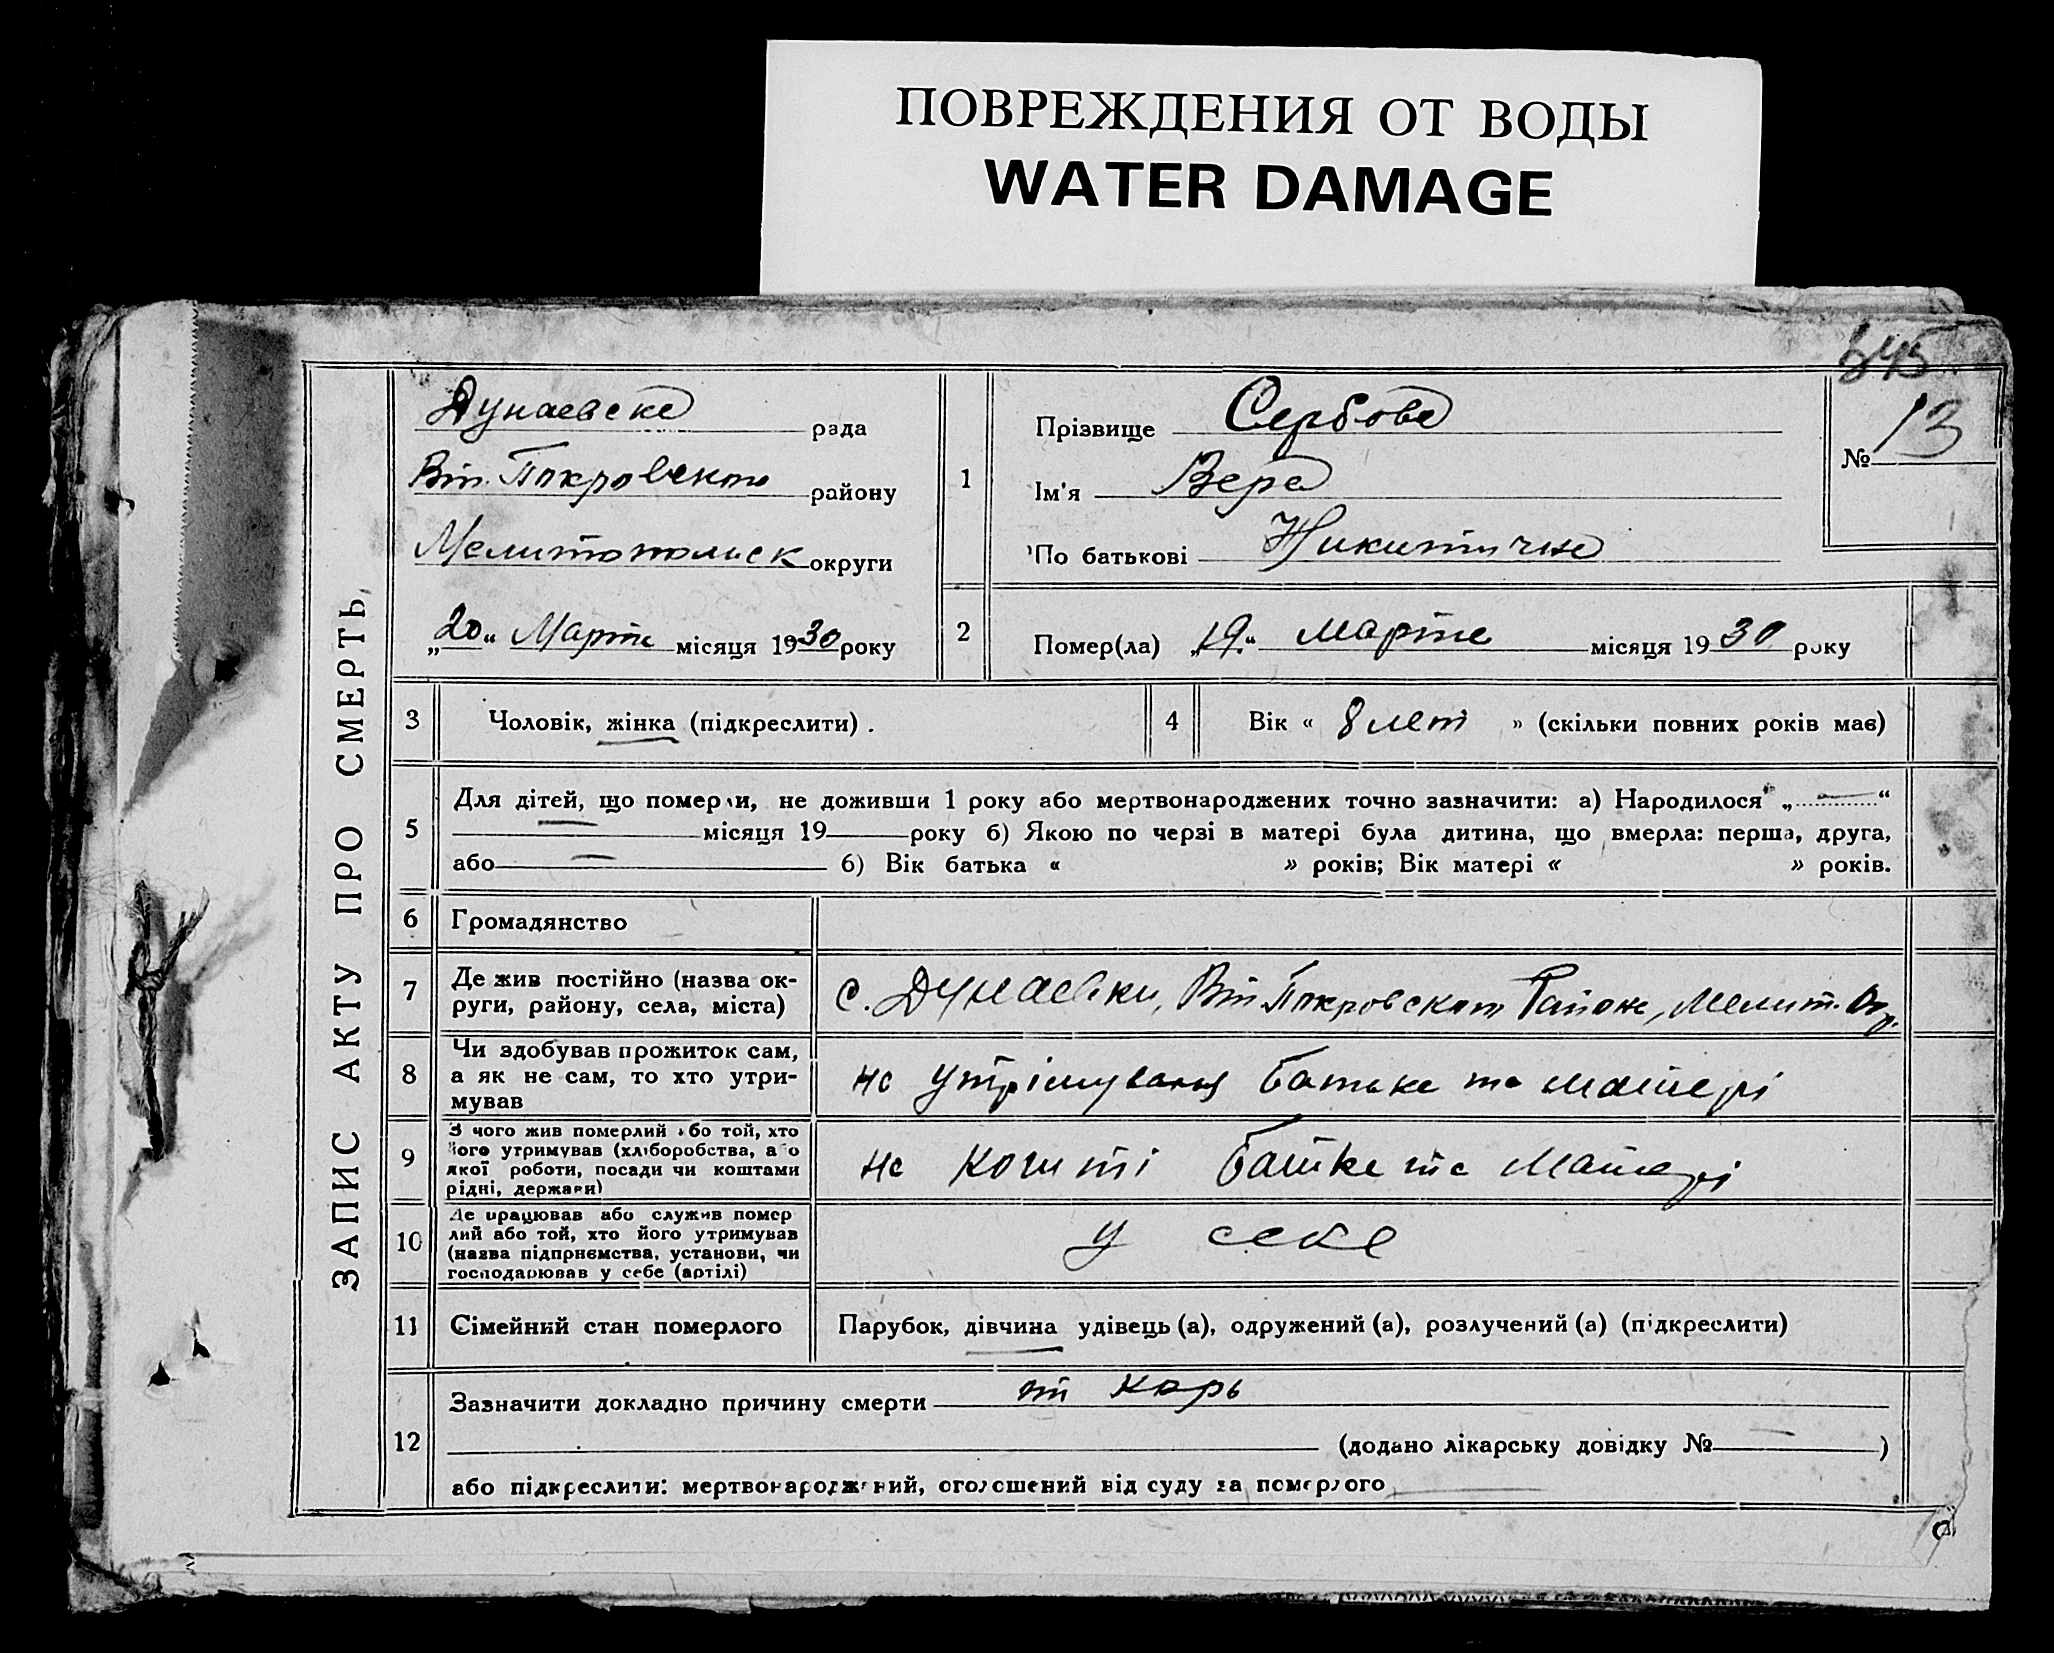 ПОВРЕЖДЕНИЯ ОТ ВОДЫ
WATER DAMAGE
845
ЗАПИС АКТУ ПРО СМЕРТЬ,
Дунаевска рада
Віт. Покровского району
Мелитопольск округи
„20“ Марта місяця 1930 року
1
Прізвище Сербова
Ім'я Вера
По батькові Никитична
№ 13
2
Помер(ла) „19.“ марта місяця 1930 року
3
Чоловік, жінка (підкреслити).
4
Вік « 8 лет » (скільки повних років має)
5
Для дітей, що померли, не доживши 1 року або мертвонароджених точно зазначити: а) Народилося „—“
— місяця 19 року б) Якою по черзі в матері була дитина, що вмерла: перша, друга,
або — б) Вік батька « » років; Вік матері « » років.
6
Громадянство
7
Де жив постійно (назва ок-
руги, району, села, міста)
с. Дунаевки, Віт. Покровского Района, Мелит. Окр.
8
Чи здобував прожиток сам,
а як не сам, то хто утри-
мував
на утрімуваня батька та матері
9
З чого жив померлий або той, хто
його утримував (хліборобства, або
якої роботи, посади чи коштами
рідні, держави)
на кошті батька та Матері
10
Де працював або служив помер
лий або той, хто його утримував
(назва підприємства, установи, чи
господарював у себе (артілі)
у себе
11
Сімейний стан померлого
Парубок, дівчина удівець (а), одружений (а), розлучений (а) (підкреслити)
12
Зазначити докладно причину смерти от корь
(додано лікарську довідку № — )
або підкреслити: мертвонароджений, оголошений від суду за померлого